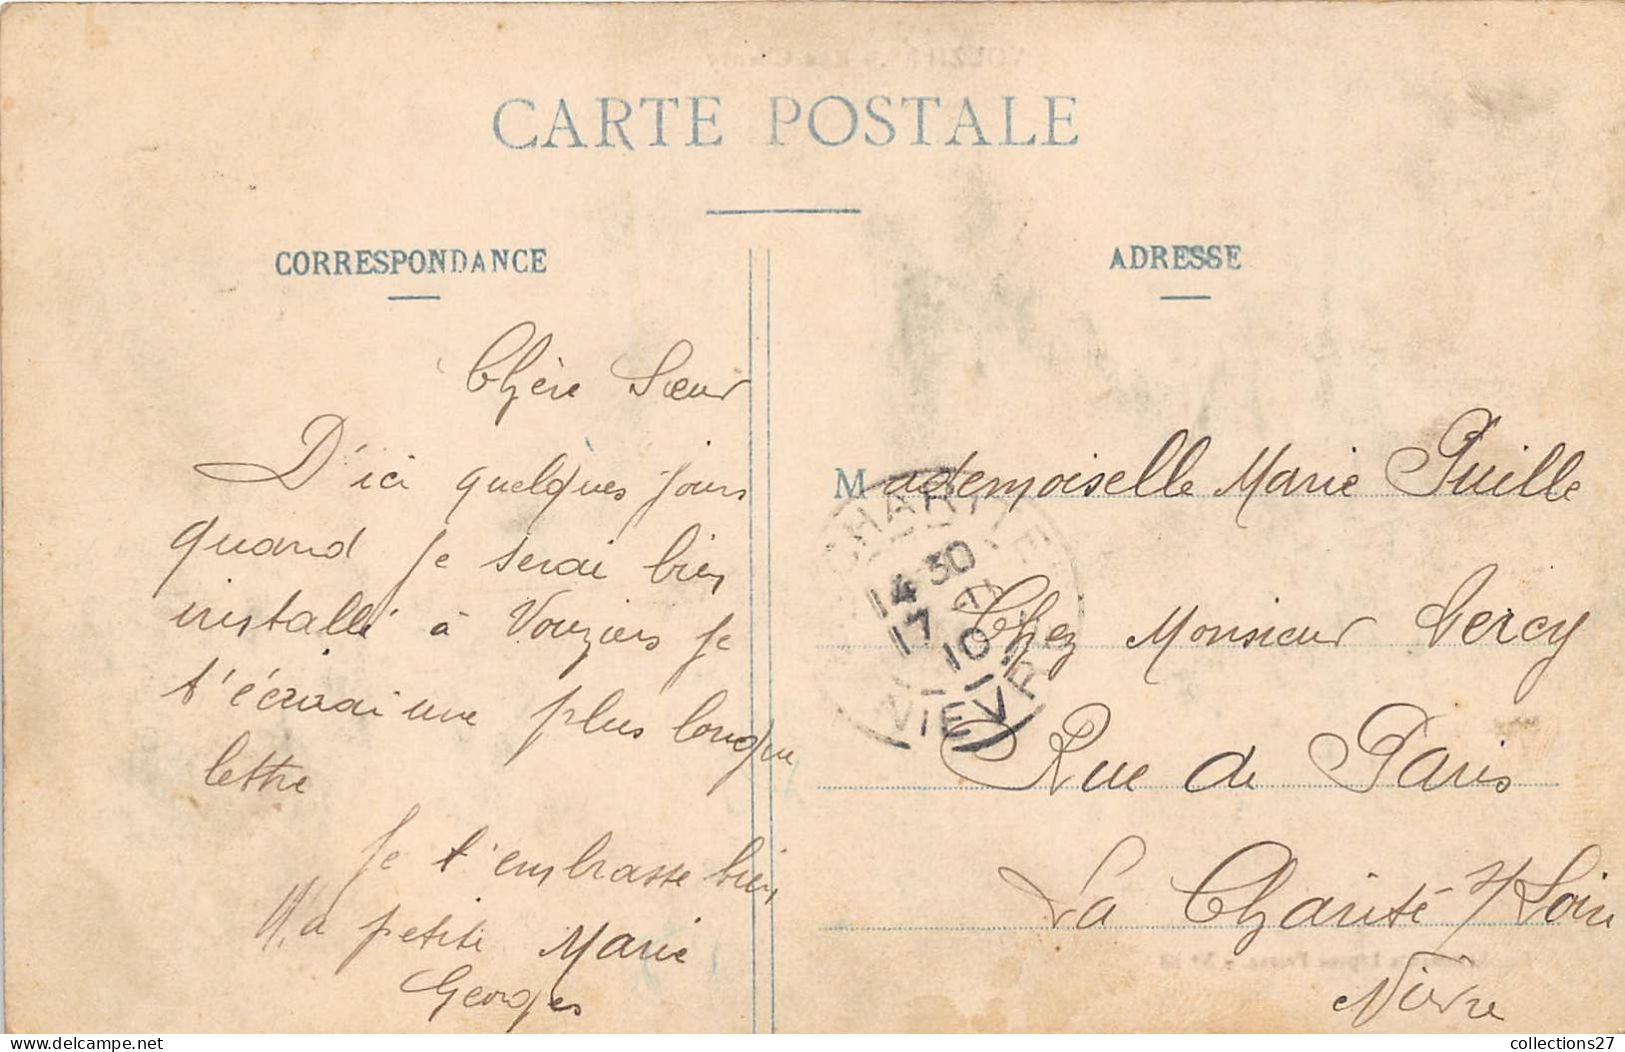 CARTE POSTALE
CORRESPONDANCE
Chère Sœur
D'ici quelques jours
quand je serai bien
installé à Vouziers je
t'écrirai une plus longue
lettre
Je t'embrasse bien
Ma petite Marie
Georges
ADRESSE
Mademoiselle Marie Puille
Chez Monsieur Cercy
Rue de Paris
La Charité s/Loire
Nièvre
CHARITE
14 30
17
10
NIEVRE
collections27